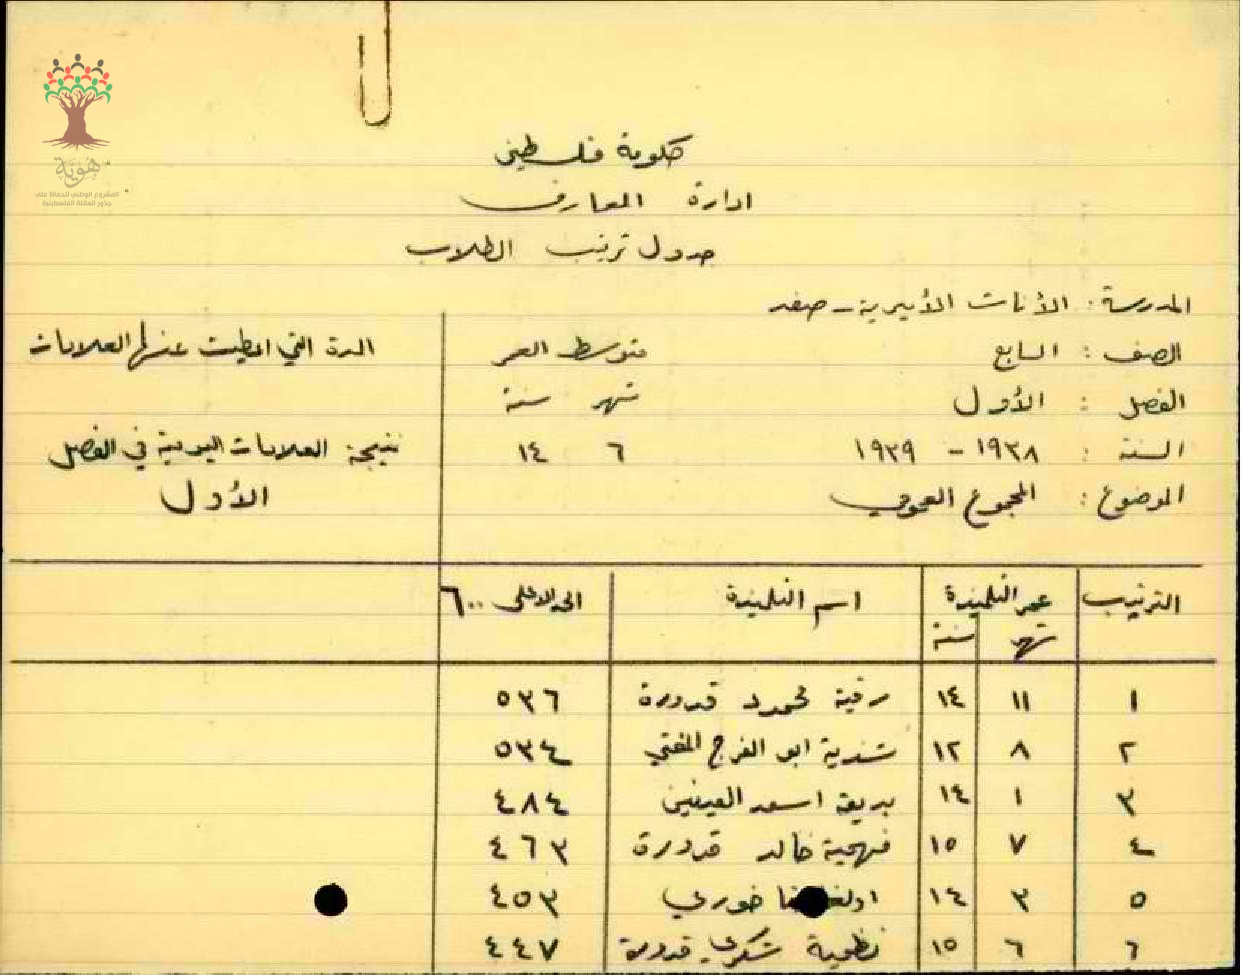 هوية
المشروع الوطني للحفاظ على
جذور العائلة الفلسطينية
حكومة فلسطين
ادارة المعارف
جدول ترتيب الطلاب
المدرسة : الأناث الأميرية - صفد
الصف : السابع
متوسط العمر
المدة التي اعطيت عنها العلامات
الفصل : الأول
شهر سنة
السنة : ١٩٣٨ - ١٩٣٩
٦ ١٤
نتيجة العلامات اليومية في الفصل
الأول
الموضوع : المجموع العمومي
الترتيب عمر التلميذة اسم التلميذة الحد الاعلى ٦٠٠
شهر سنة
١ ١١ ١٤ رقية محمود قدورة ٥٣٦
٢ ٨ ١٢ شذية ابو الفرج المفتي ٥٣٤
٣ ١ ١٤ بديعة اسعد العينين ٤٨٤
٤ ٧ ١٥ فهمية خالد قدورة ٤٦٣
٥ ٣ ١٤ خوري ٤٥٣
٦ ٦ ١٥ نظمية شكري قدورة ٤٤٧